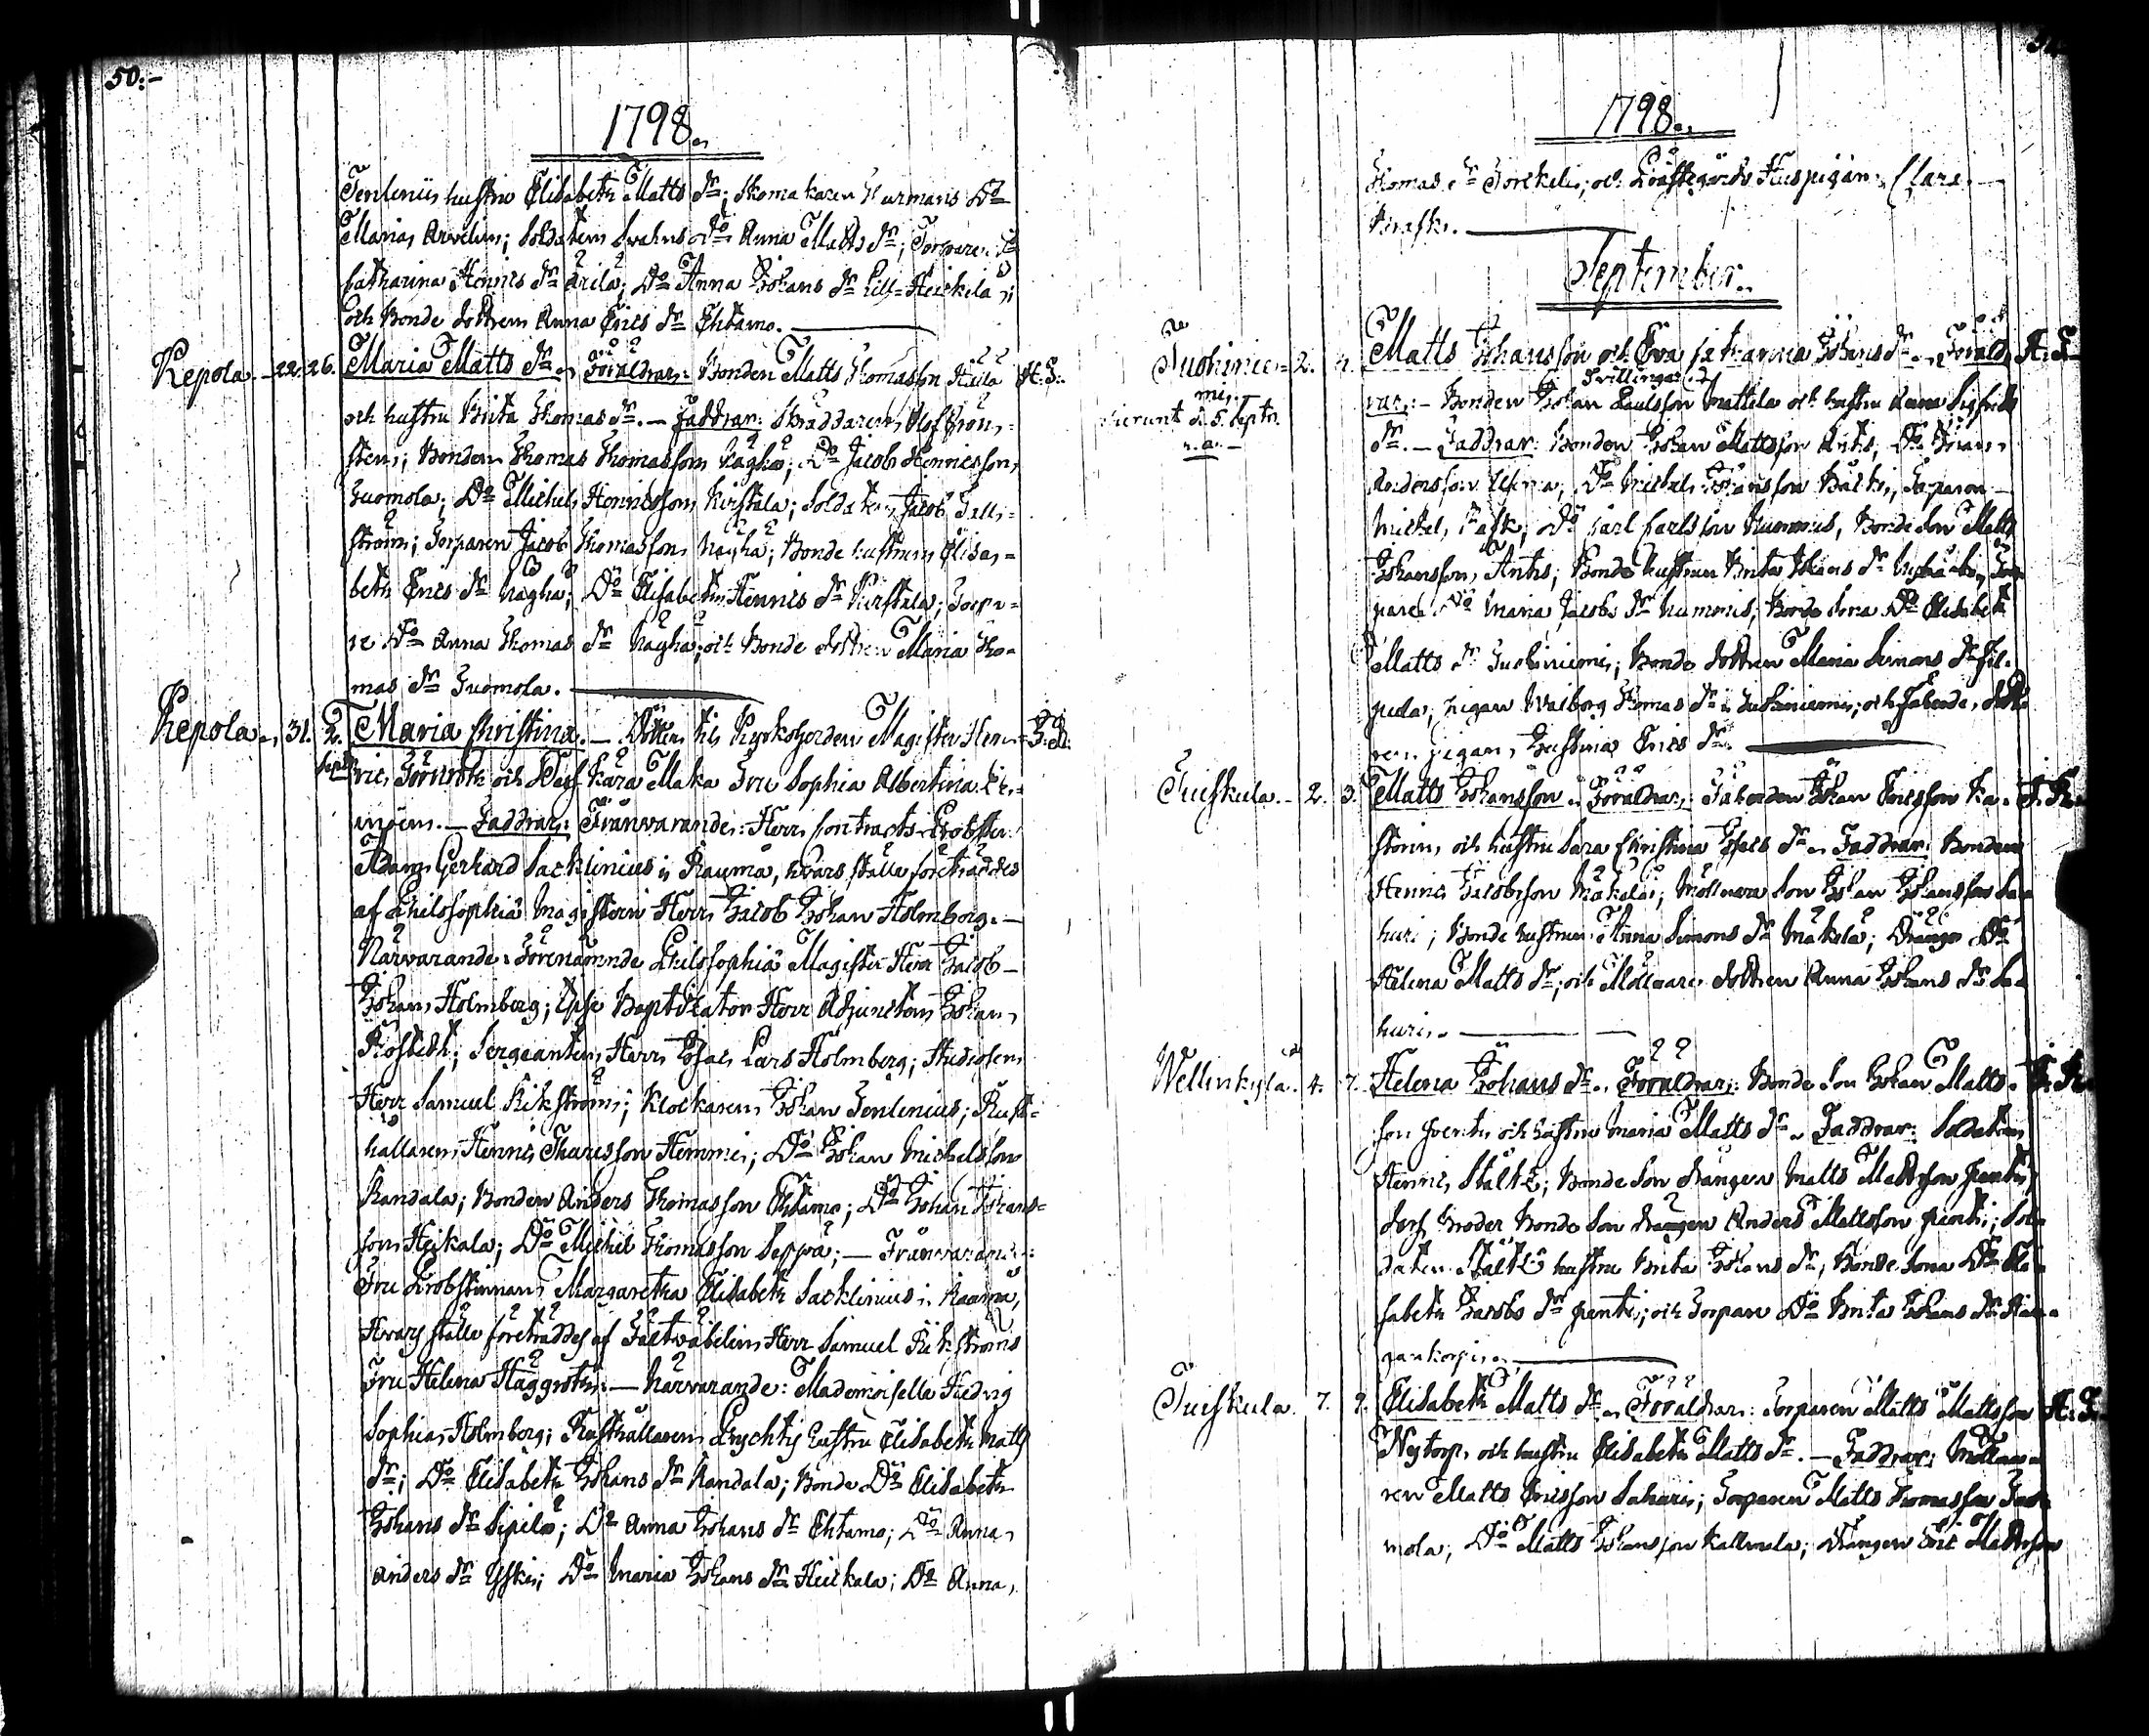 50:-
1798.
Tenlenii hustru Elisabeth Matts Dr; Skomakaren Hurmaris Do
Maria Arvelin; Soldatens Svahns Do Anna Matts Dr; Torpare Do
Catharina Henrics Dr Arila; Do Anna Johans Dr Lill-Heickilä;
och Bonde dottren Anna Erics Dr Ehtamo.
Kepola. 22. 26. Maria Matts Dr. Föräldrar: Bonden Matts Thomasson A: T:
och hustru Brita Thomas Dr. - Faddrar: Skräddaren Olof Grön-
sten; Bonden Thomas Thomasson Nagha; Do Jacob Henricsson
Juomola; Do Michel Henricsson Kirstala; Soldaten Jacob
ström; Torparen Jacob Thomasson Nagha; Bonde hustrun Elisa-
beth Erics Dr Nagha; Do Elisabeth Henrics Dr Kirstala; Torpa-
re Do Anna Thomas Dr Nagha; och Bonde dottren Maria Tho-
mas Dr Juomola.
Kepola. 31. 2. Maria Christina. - Dotter til Kyrkoherden Magister Hen-
Septr ric och Dess Kära Maka Fru Sophia Albertina
- Faddrar: Frånvarande: Herr Contracts Probsten
Adam Gerhard Sacklinius i Raumå, hvars ställe företräddes
af Philosophiæ Magistern Herr Jacob Johan Holmberg. -
Närvarande: Förenämnde Philosophiæ Magister Herr Jacob
Johan Holmberg; Ipse Baptizator Herr Adjuncten Johan
Rostedt; Sergeanten Herr Isaac Lars Holmberg; Studiosen
Herr Samuel Rikström; Klockaren Johan Tenlenius; Rust-
hållaren Henric Thuresson Hemmi; Do Johan Michelsson
Randala; Bonden Anders Thomasson Ehtamo; Do Johan Johans-
son Heikala; Do Michel Thomasson Seppä; - Frånvarande:
Fru Probstinnan Margaretha Elisabeth Sacklinius i Raumå,
Hvars ställe företräddes af Fältwäbelen Herr Samuel Rikströms
Fru Helena Häggroth. - Närvarande: Mademoiselle Hedvig
Sophia Holmberg; Rusthållaren Prychtis hustru Elisabeth Matts
Dr; Do Elisabeth Johans Dr Randala; Bonde Do Elisabeth
Johans Dr Sipilä; Do Anna Johans Dr Ehtamo; Do Anna
Anders Dr Yski; Do Maria Johans Dr Heickala; Do Anna
1798.
Thomas Dr Torckeli; och Prästegårds Huspigan Clara
Krask.
September.
Tuohinie- 2. 4. Matts Johansson och Eva Catharina Johans Dr. Föräld- A: T:
mi. Tvillingar
rar: - Bonden Johan Paulsson Mattila och hustru Anna Sigfrids
obierunt d. 5 Septr.
Dr. - Faddrar: Bonden Johan Mattsson Antis; Do Göran
n. a. -
Andersson; Do Michel Johansson Bäcki; Torparen
Michel Pask; Do Carl Carlsson Nummis; Bonde Son Matts
Johansson Antis; Bonde hustrun Brita Johans Dr
pare Do Maria Jacobs Dr Nummis; Bonde Sona Do Elisabeth
Matts Dr Tuohiniemi; Bonde dottren Maria Simons Dr Fil-
pula; Pigan Walborg Thomas Dr i Tuohiniemi; och
ren Pigan Justina Erics Dr.
Tuiskula. 2. 3. Matts Johansson. Föräldrar: Johan Ericsson Ka-
storin och hustru Sara Christina Isacs Dr. Faddrar: Bonden
Henric Jacobsson Mäkelä; Möllnare Son Johan Johansson Sa-
huri; Bonde hustrun Anna Simons Dr Mäkelä; Dränge Do
Helena Matts Dr; och Möllnare dottren Anna Johans Dr Sa-
huri.
Wellinkylä. 4. 7. Helena Johans Dr. Föräldrar: Bonde Son Johan Matts-
son Pentti och hustru Maria Matts Dr. Faddrar: Soldaten
Henric Stålt; Bonde Son drängen Matts Mattsson Pentti,
dess Broder Bonde Son drängen Anders Mattsson Pentti; Sol-
daten Stålts hustru Brita Johans Dr; Bonde Sona Do Eli-
sabeth Jacobs Dr Pentti; och Torpare Do Brita Johans Dr
pankorpi.
Tuiskula. 7. 9. Elisabeth Matts Dr. Föräldrar: Torparen Matts Mattsson A: T:
Nytorp och hustru Elisabeth Matts Dr. - Faddrar: Möllna-
ren Matts Ericsson Sahari; Torparen Matts Thomasson
mola; Do Matts Johansson Kallmela; Drängen Eric Mattsson